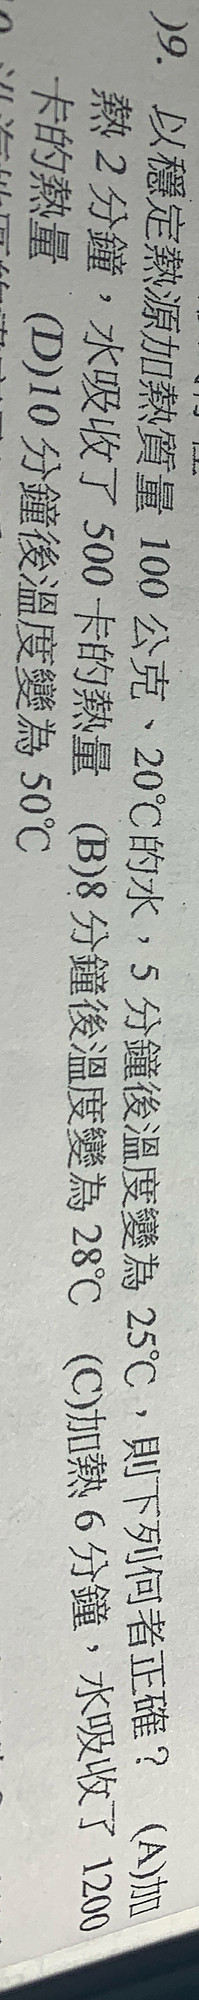 )9. 以穩定熱源加熱質量 100 公克、20℃的水，5 分鐘後溫度變為 25℃，則下列何者正確？ (A)加
熱 2 分鐘，水吸收了 500 卡的熱量 (B)8 分鐘後溫度變為 28℃ (C)加熱 6 分鐘，水吸收了 1200
卡的熱量 (D)10 分鐘後溫度變為 50℃